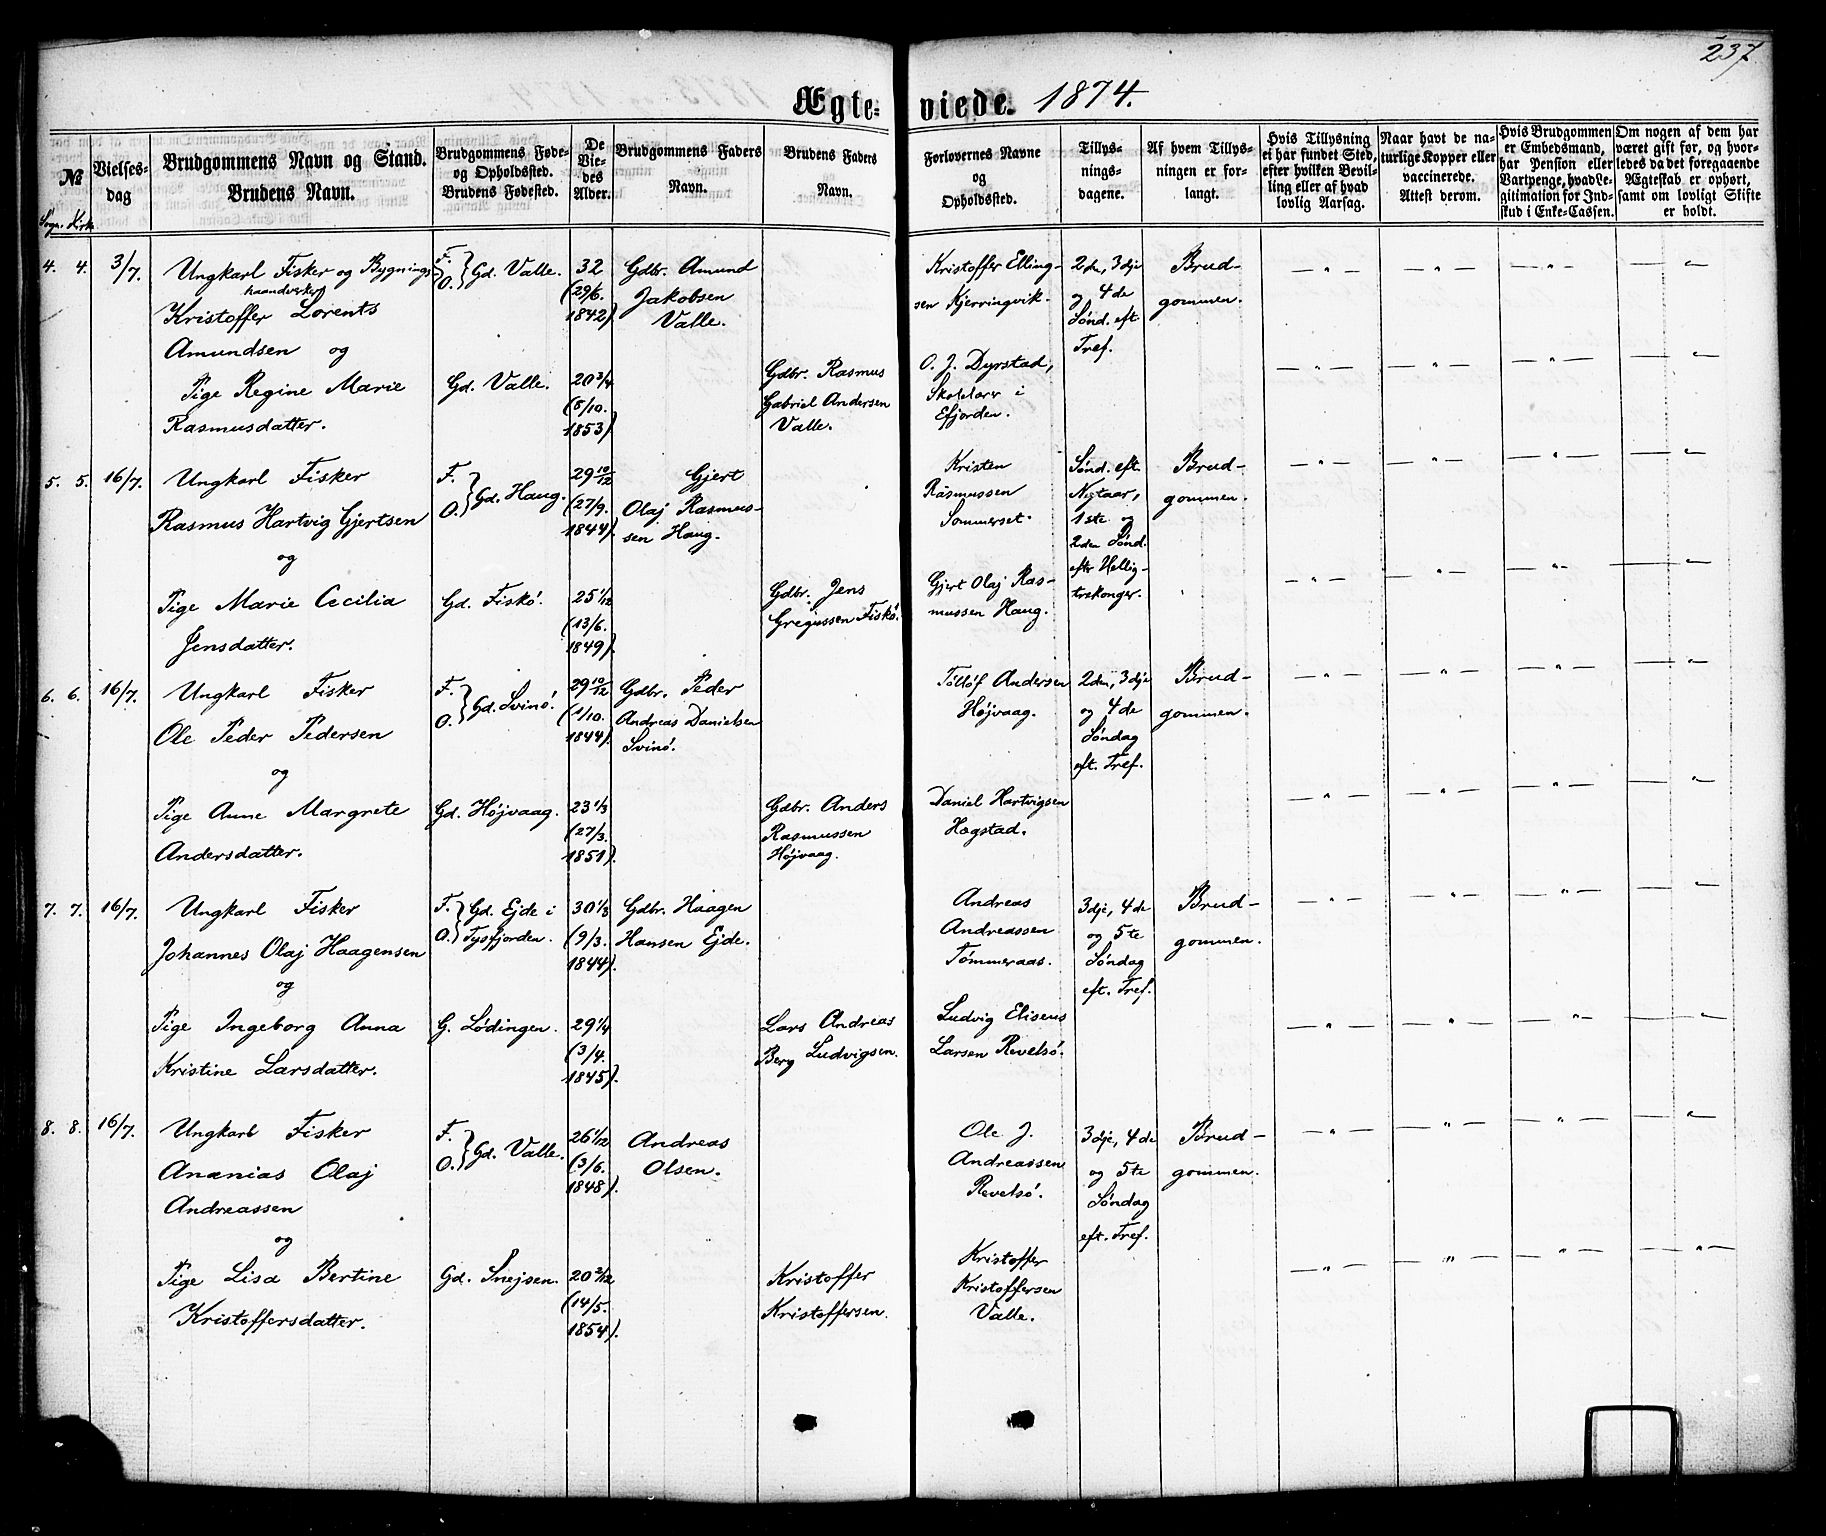 237
Ægteviede. 1874.
№
Sogn. Kirke
Vielses-
dag
Brudgommens Navn og Stand.
Brudens Navn.
Brudgommens Føde-
og Opholdssted.
Brudens Fødested.
De
Vie-
des
Alder.
Brudgommens Faders
Navn.
Brudens Faders
Navn.
Forlovernes Navne
og
Opholdssted.
Tillys-
nings-
dagene.
Af hvem Tillys-
ningen er for-
langt.
Hvis Tillysning
ei har fundet Sted,
efter hvilken Bevil-
ling eller af hvad
lovlig Aarsag.
Naar havt de na-
turlige Kopper eller
vaccinerede.
Attest derom.
Hvis Brudgommen
er Embedsmand,
har Pension eller
Vartpenge, hvad Le-
gitimation for Ind-
skud i Enke-Cassen.
Om nogen af dem har
været gift før, og hvor-
ledes da det foregaaende
Ægteskab er ophørt,
samt om lovligt Skifte
er holdt.
4. 4. 3/7.
Ungkarl Fisker og Bygnings-
haandverker
Kristoffer Lorents
Amundsen og
Pige Regine Marie
Rasmusdatter.
F.
O. } Gd. Valle.
Gd. Valle.
32
(29/6.
1842).
20 3/4
(8/10.
1853).
Gdbr. Amund
Jakobsen
Valle.
Gdbr. Rasmus
Gabriel Andersen
Valle.
Kristoffer Elling-
sen Kjerringvik.
O. J. Dyrstad,
Skolelærer i
Efjorden.
2den, 3dje
og 4de
Sönd. eft.
Tref.
Brud-
gommen.
— " — — " — — " — — " —
— " — — " — — " — — " —
5. 5. 16/7.
Ungkarl Fisker
Rasmus Hartvig Gjertsen
og
Pige Marie Cecilia
Jensdatter.
F.
O. } Gd. Haug.
Gd. Fiskö.
29 10/12
(27/9.
1844).
25 1/12
(13/6.
1849).
Gjert
Olaj Rasmus-
sen Haug.
Gdbr. Jens
Gregussen Fiskö.
Kristen
Rasmussen
Sommerset.
Gjert Olaj Ras-
mussen Haug.
Sönd. eft.
Nytaar,
1ste og
2den Sönd.
eftr Hellig-
trekonger.
Brud-
gommen.
— " — — " — — " — — " —
— " — — " — — " — — " —
6. 6. 16/7.
Ungkarl Fisker
Ole Peder Pedersen
og
Pige Anne Margrete
Andersdatter.
F.
O. } Gd. Svinö.
Gd. Højvaag.
29 10/12
(1/10.
1844).
23 1/3
(27/3.
1851).
Gdbr. Peder
Andreas Danielsen
Svinö.
Gdbr. Anders
Rasmussen
Højvaag.
Tollöf Andersen
Højvaag.
Daniel Hartvigsen
Hægstad.
2den, 3dje
og 4de
Söndag
eft. Tref.
Brud-
gommen.
— " — — " — — " — — " —
— " — — " — — " — — " —
7. 7. 16/7.
Ungkarl Fisker
Johannes Olaj Haagensen
og
Pige Ingeborg Anna
Kristine Larsdatter.
F. } Gd. Ejde i
O. } Tysfjorden.
G. Lödingen.
30 1/3
(9/3.
1844).
29 1/4
(3/4.
1845).
Gdbr. Haagen
Hansen Ejde.
Lars Andreas
Berg Ludvigsen.
Andreas
Andreassen
Tömmeraas.
Ludvig Eliseus
Larsen Revelsö.
3dje, 4de
og 5te
Söndag
eft. Tref.
Brud-
gommen.
— " — — " — — " — — " —
— " — — " — — " — — " —
8. 8. 16/7.
Ungkarl Fisker
Ananias Olaj
Andreassen
og
Pige Lisa Bertine
Kristoffersdatter.
F.
O. } Gd. Valle.
Gd. Snejsen.
26 1/12
(3/6.
1848).
20 2/12
(14/5.
1854).
Andreas
Olsen.
Kristoffer
Kristoffersen.
Ole J.
Andreassen
Revelsö.
Kristoffer
Kristoffersen
Valle.
3dje, 4de
og 5te
Söndag
eft. Tref.
Brud-
gommen.
— " — — " — — " — — " —
— " — — " — — " — — " —